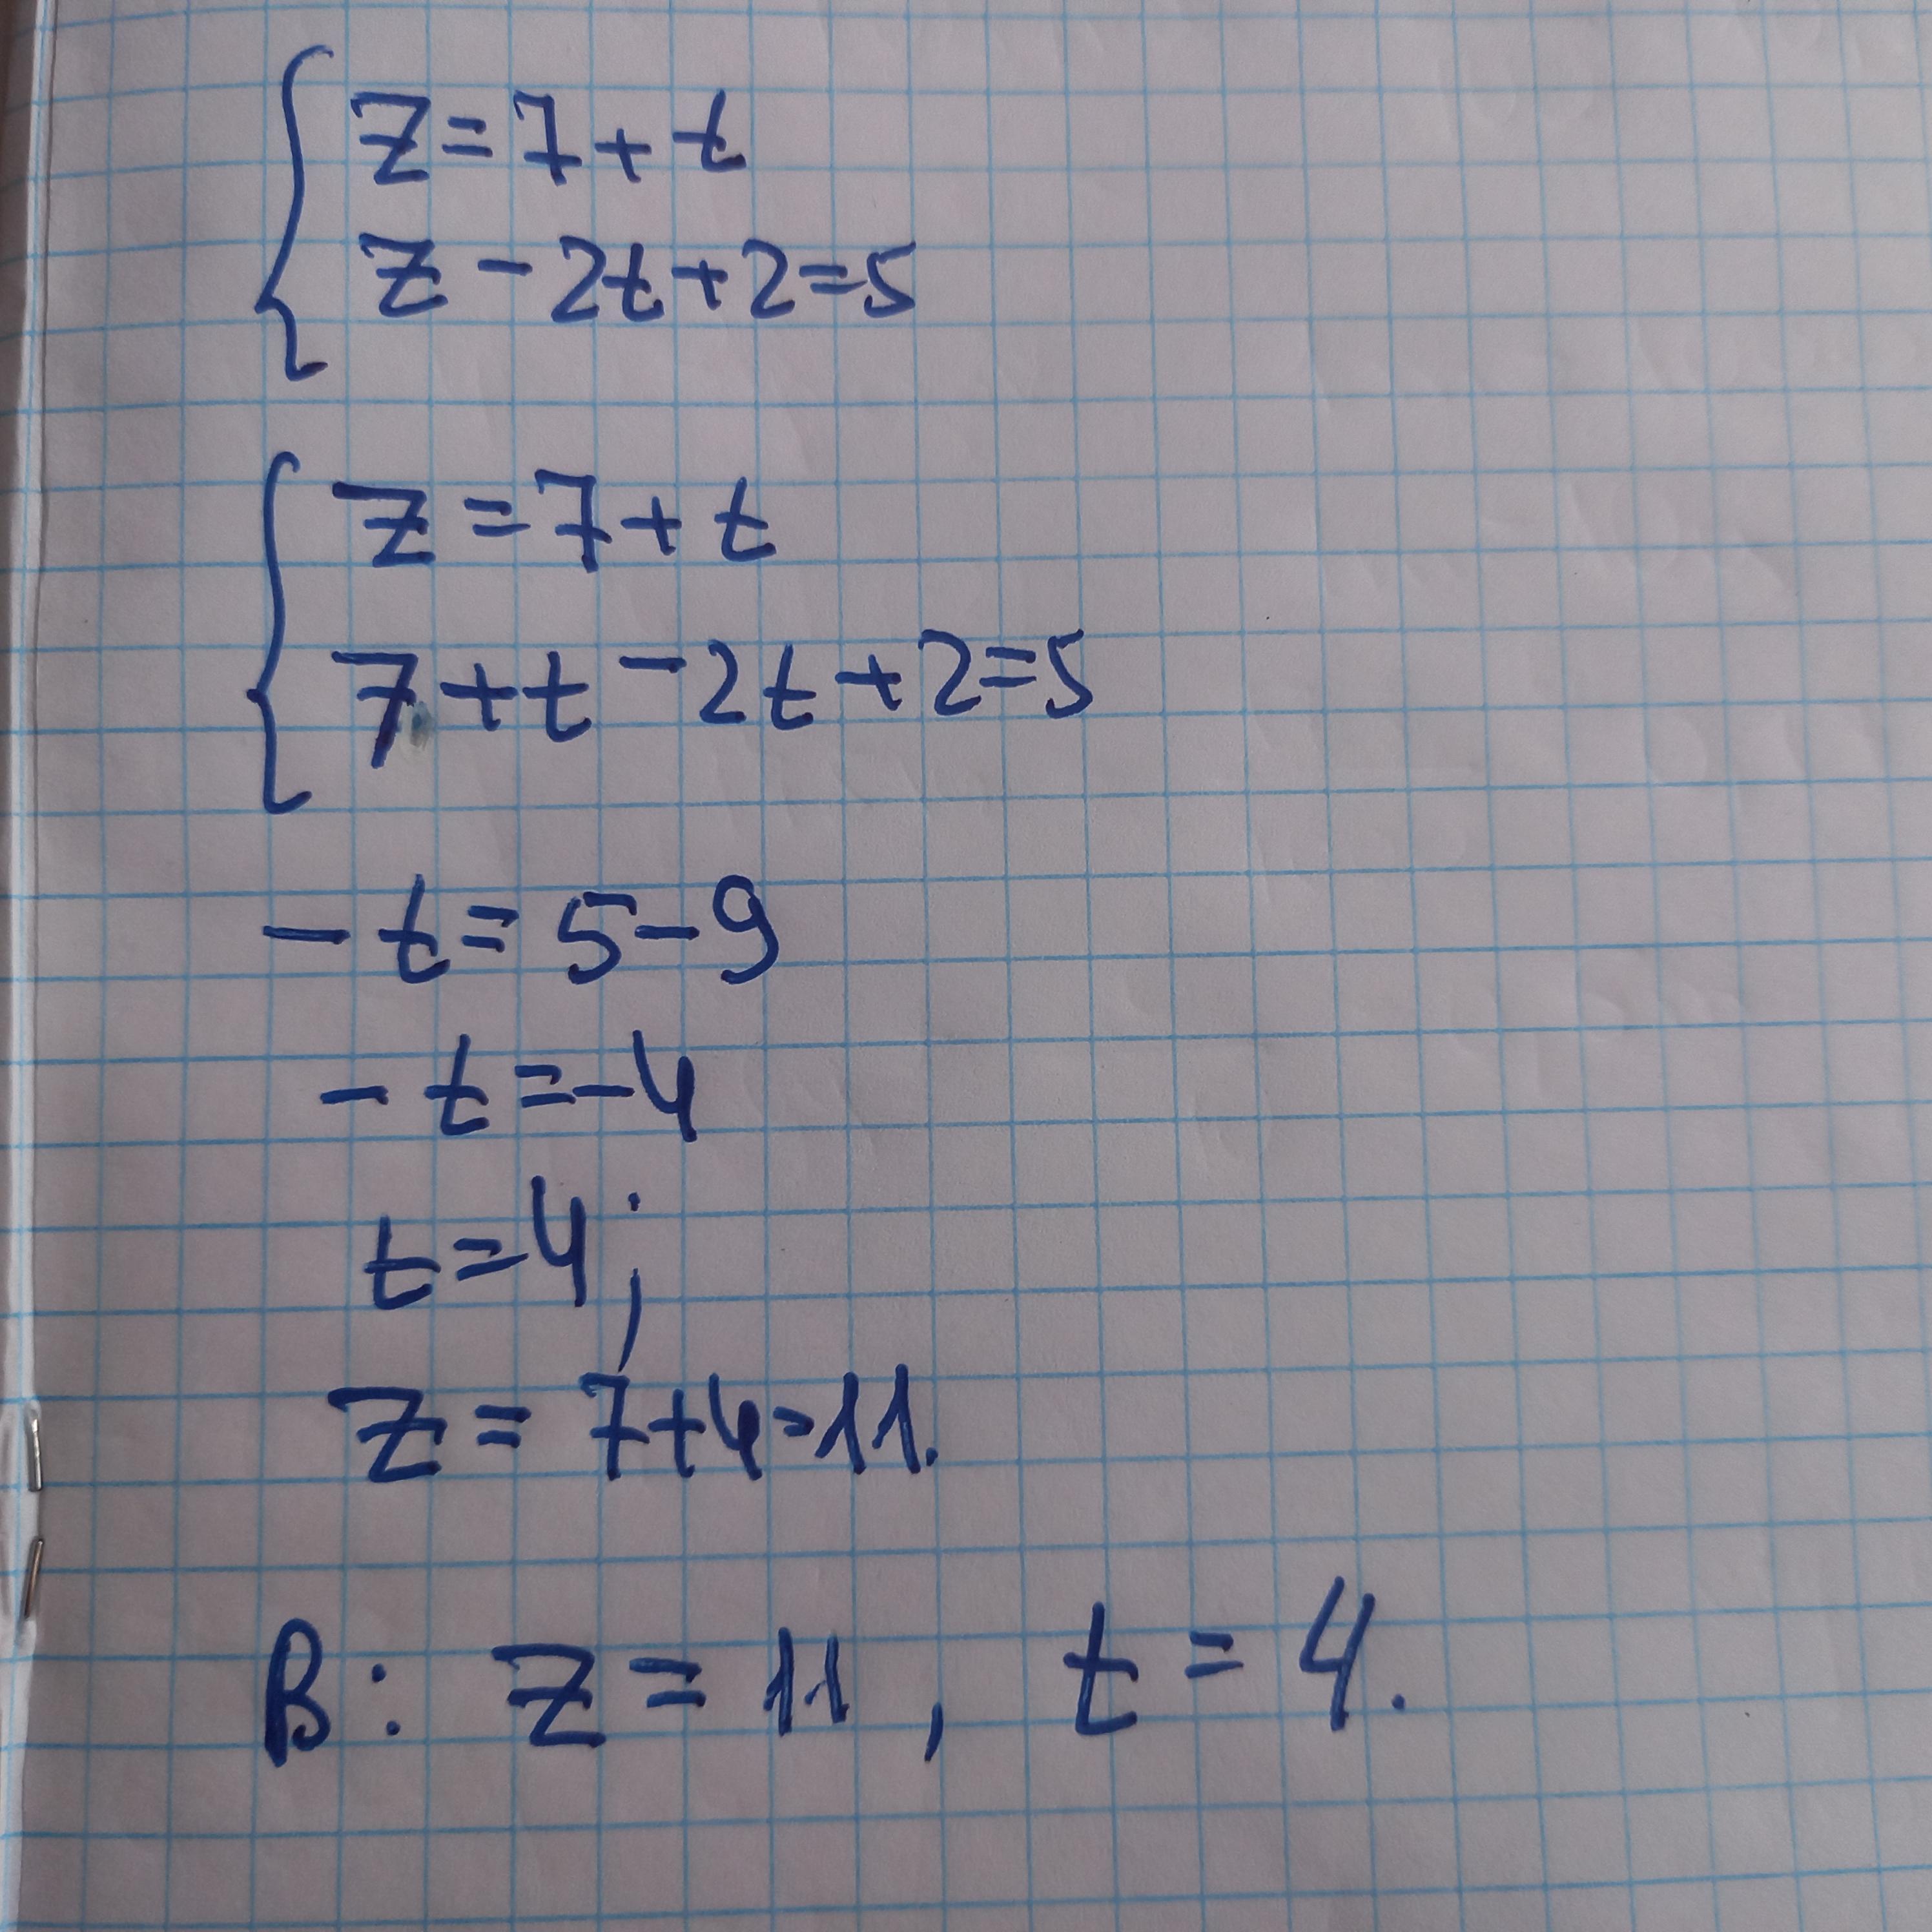 z=7+t
z-2t+2=5
z=7+t
7+t-2t+2=5
-t=5-9
-t=-4
t=4;
z=7+4=11.
В: z=11, t=4.